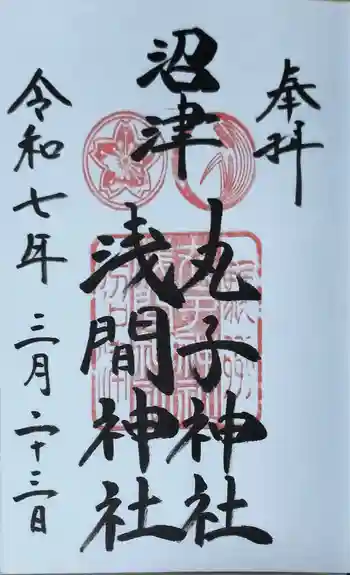 奉拝
沼津
丸子神社
浅間神社
令和七年 三月二十三日